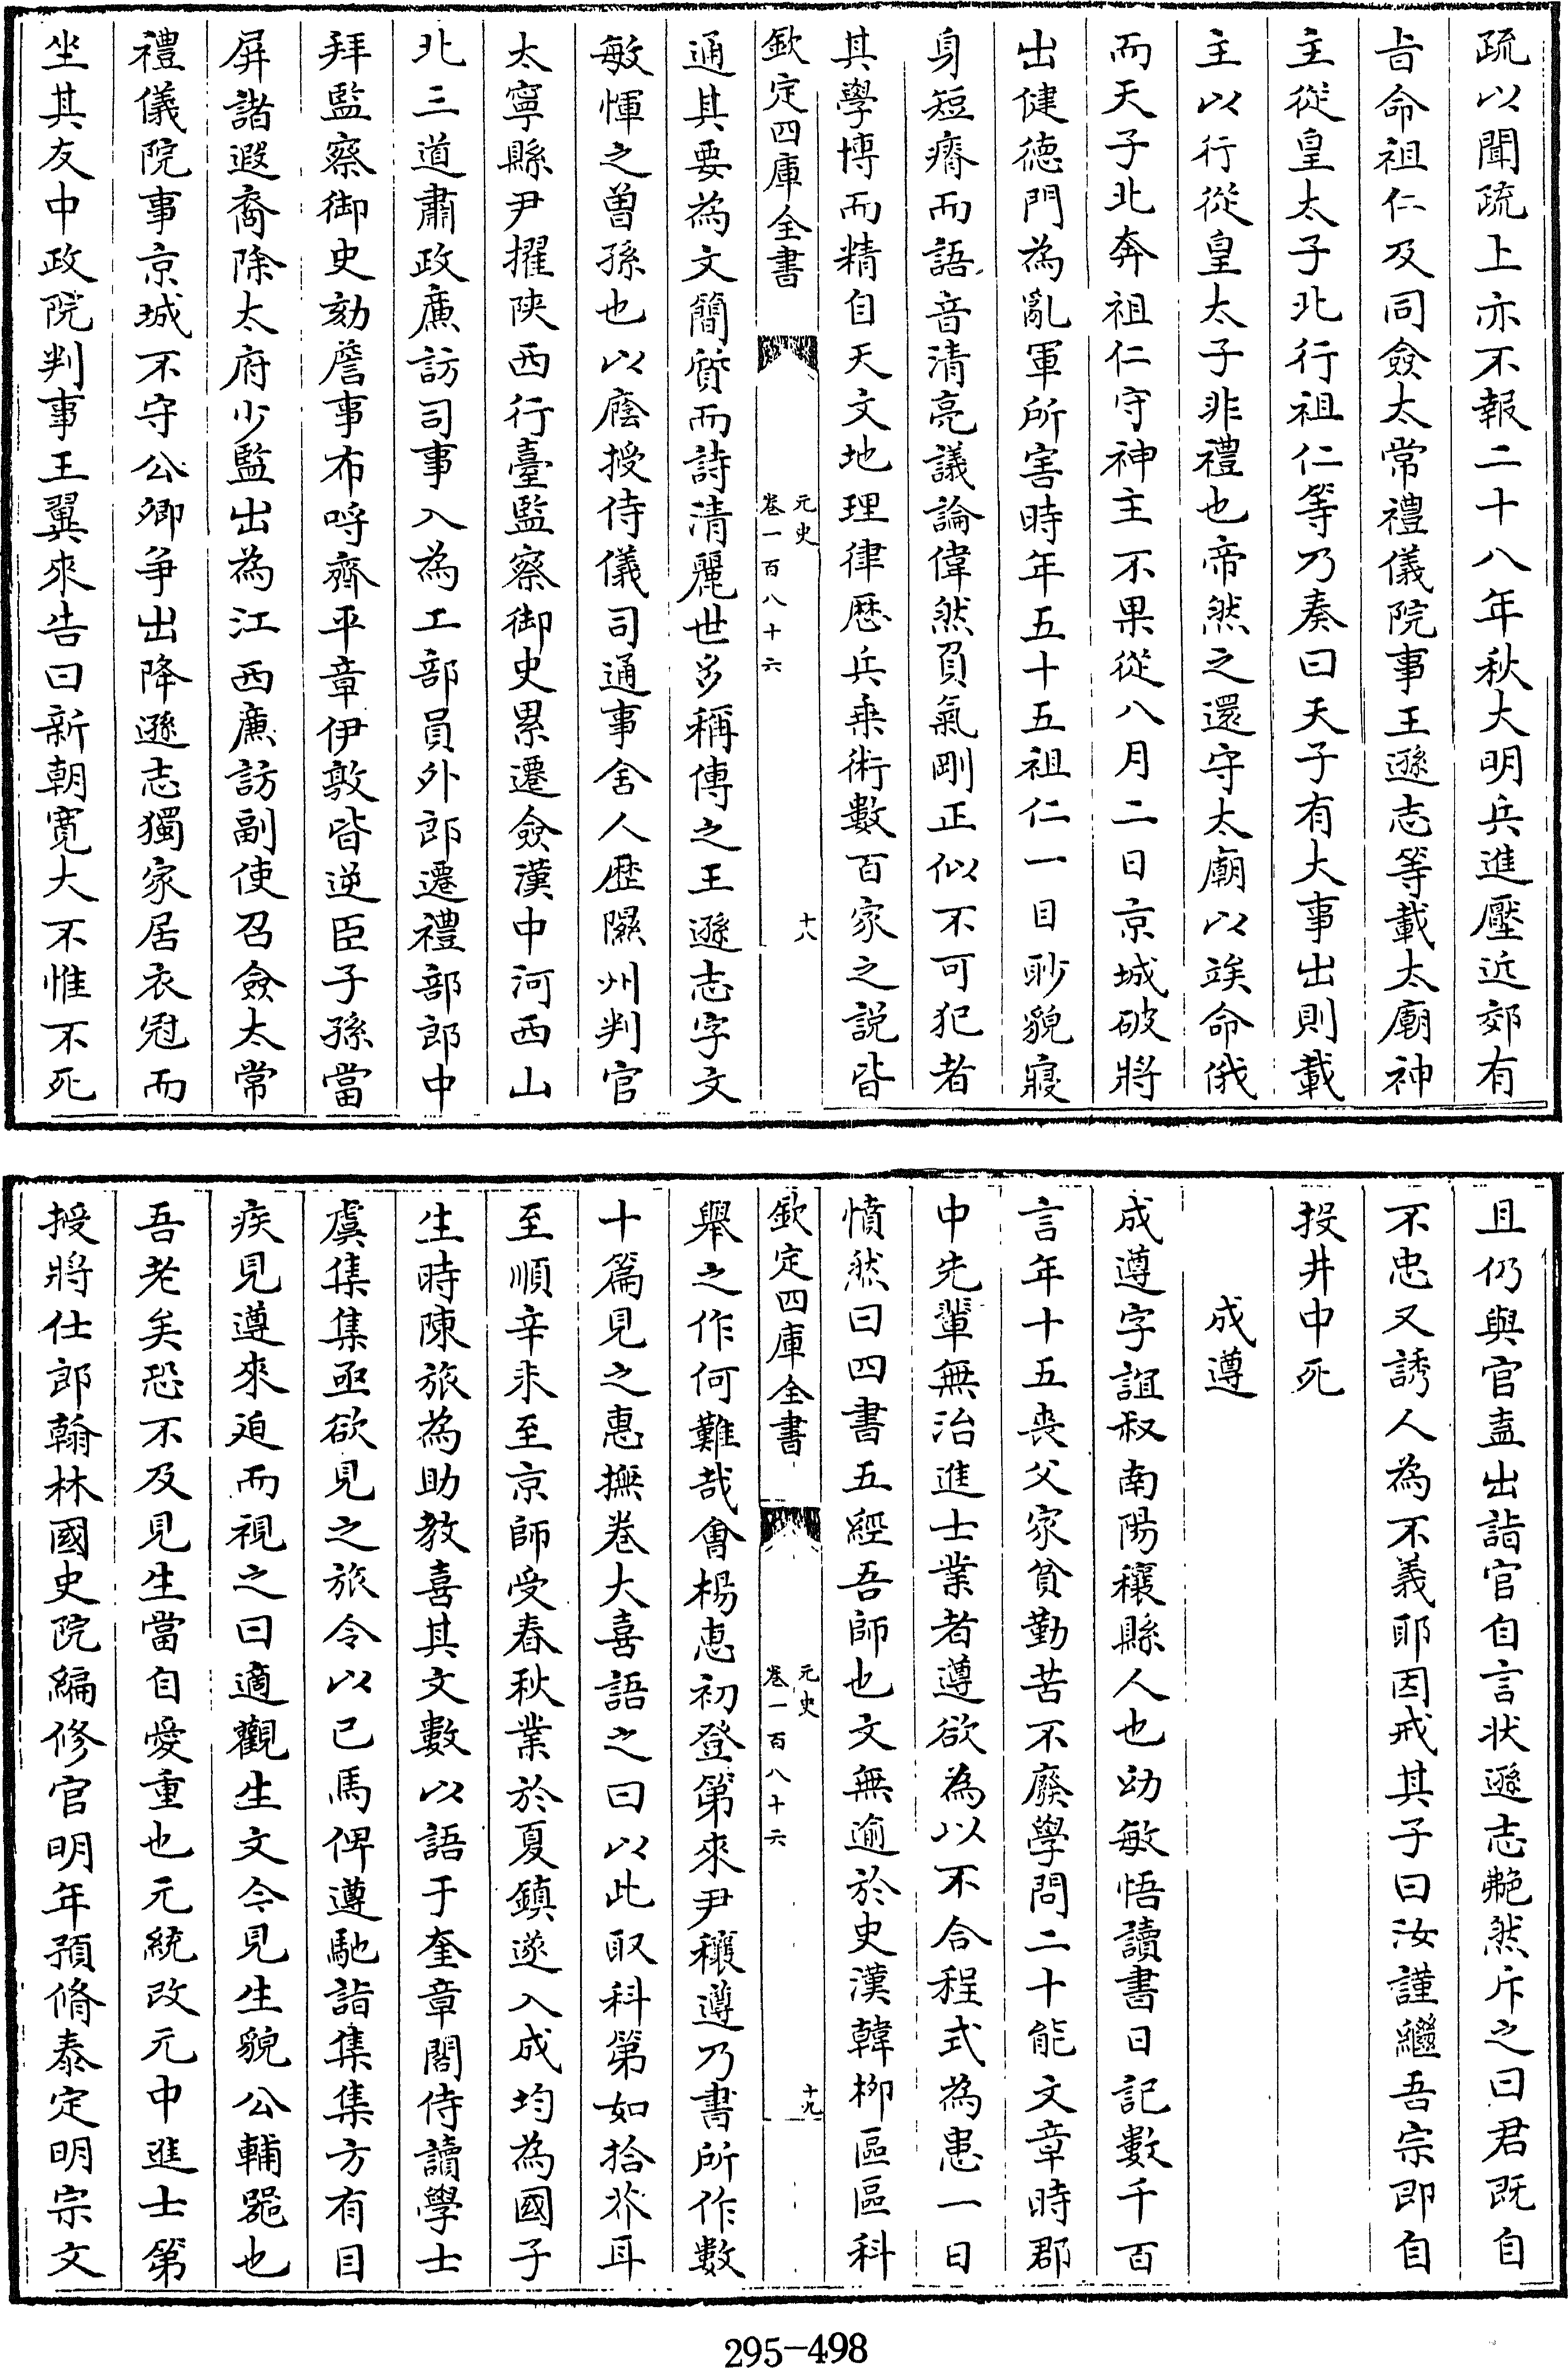 疏以聞疏上亦不報二十八年秋大明兵進壓近郊有
㫖命祖仁及同僉太常禮儀院事王遜志等載太廟神
主從皇太子北行祖仁等乃奏曰天子有大事出則載
主以行從皇太子非禮也帝然之還守太廟以竢命俄
而天子北奔祖仁守神主不果從八月二日京城破將
出健德門為亂軍所害時年五十五祖仁一目眇貌寢
身短瘠而語音清亮議論偉然負氣剛正似不可犯者
其學博而精自天文地理律厯兵乗術數百家之說皆
欽定四庫全書
元史
卷一百八十六
十八
通其要為文簡質而詩清麗世多稱傳之王遜志字文
敏惲之曽孫也以䕃授侍儀司通事舍人歴隰州判官
太寧縣尹擢陜西行臺監察御史累遷僉漢中河西山
北三道肅政廉訪司事入為工部員外郎遷禮部郎中
拜監察御史劾詹事布哷齊平章伊敦皆逆臣子孫當
屏諸遐裔除太府少監出為江西廉訪副使召僉太常
禮儀院事京城不守公卿爭出降遜志獨家居衣冠而
坐其友中政院判事王翼來告曰新朝寛大不惟不死
且仍與官盍出詣官自言状遜志艴然斥之曰君既自
不忠又誘人為不義耶因戒其子曰汝謹繼吾宗即自
投井中死
成遵
成遵字誼叔南陽穰縣人也幼敏悟讀書日記數千百
言年十五喪父家貧勤苦不廢學問二十能文章時郡
中先輩無治進士業者遵欲為以不合程式為患一日
憤然曰四書五經吾師也文無逾於史漢韓栁區區科
欽定四庫全書
元史
卷一百八十六
十九
舉之作何難哉會楊惠初登第來尹穰遵乃書所作數
十篇見之惠撫卷大喜語之曰以此取科第如拾芥耳
至順辛未至京師受春秋業於夏鎮遂入成均為國子
生時陳旅為助教喜其文數以語于奎章閣侍讀學士
虞集集亟欲見之旅令以已馬俾遵馳詣集集方有目
疾見遵來迫而視之曰適觀生文今見生貌公輔器也
吾老矣恐不及見生當自愛重也元統改元中進士第
授將仕郎翰林國史院編修官明年預脩泰定明宗文
295-498